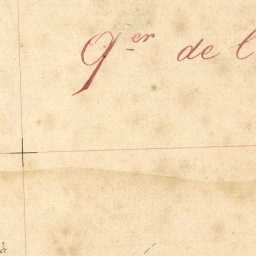 Qer de l